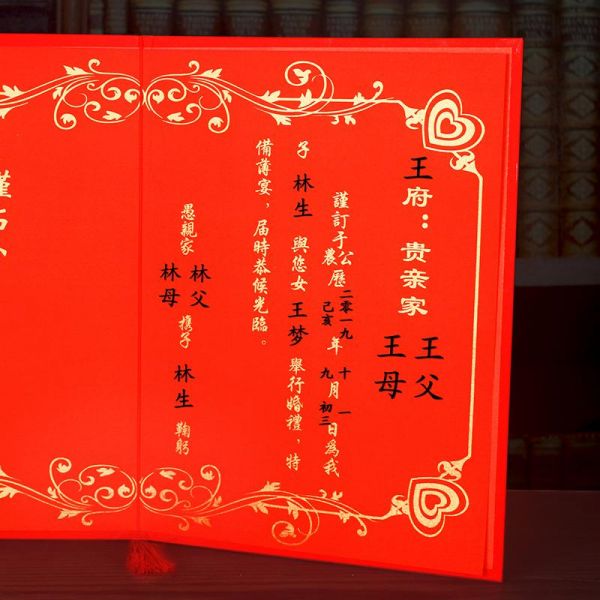 王府：贵亲家 王父 王母
謹訂于公農歷二零一九己亥年十九月一初三日為我
子林生與您女王梦舉行婚禮，特
備薄宴，届時恭候光臨。
愚親家 林父 林母 携子 林生 鞠躬